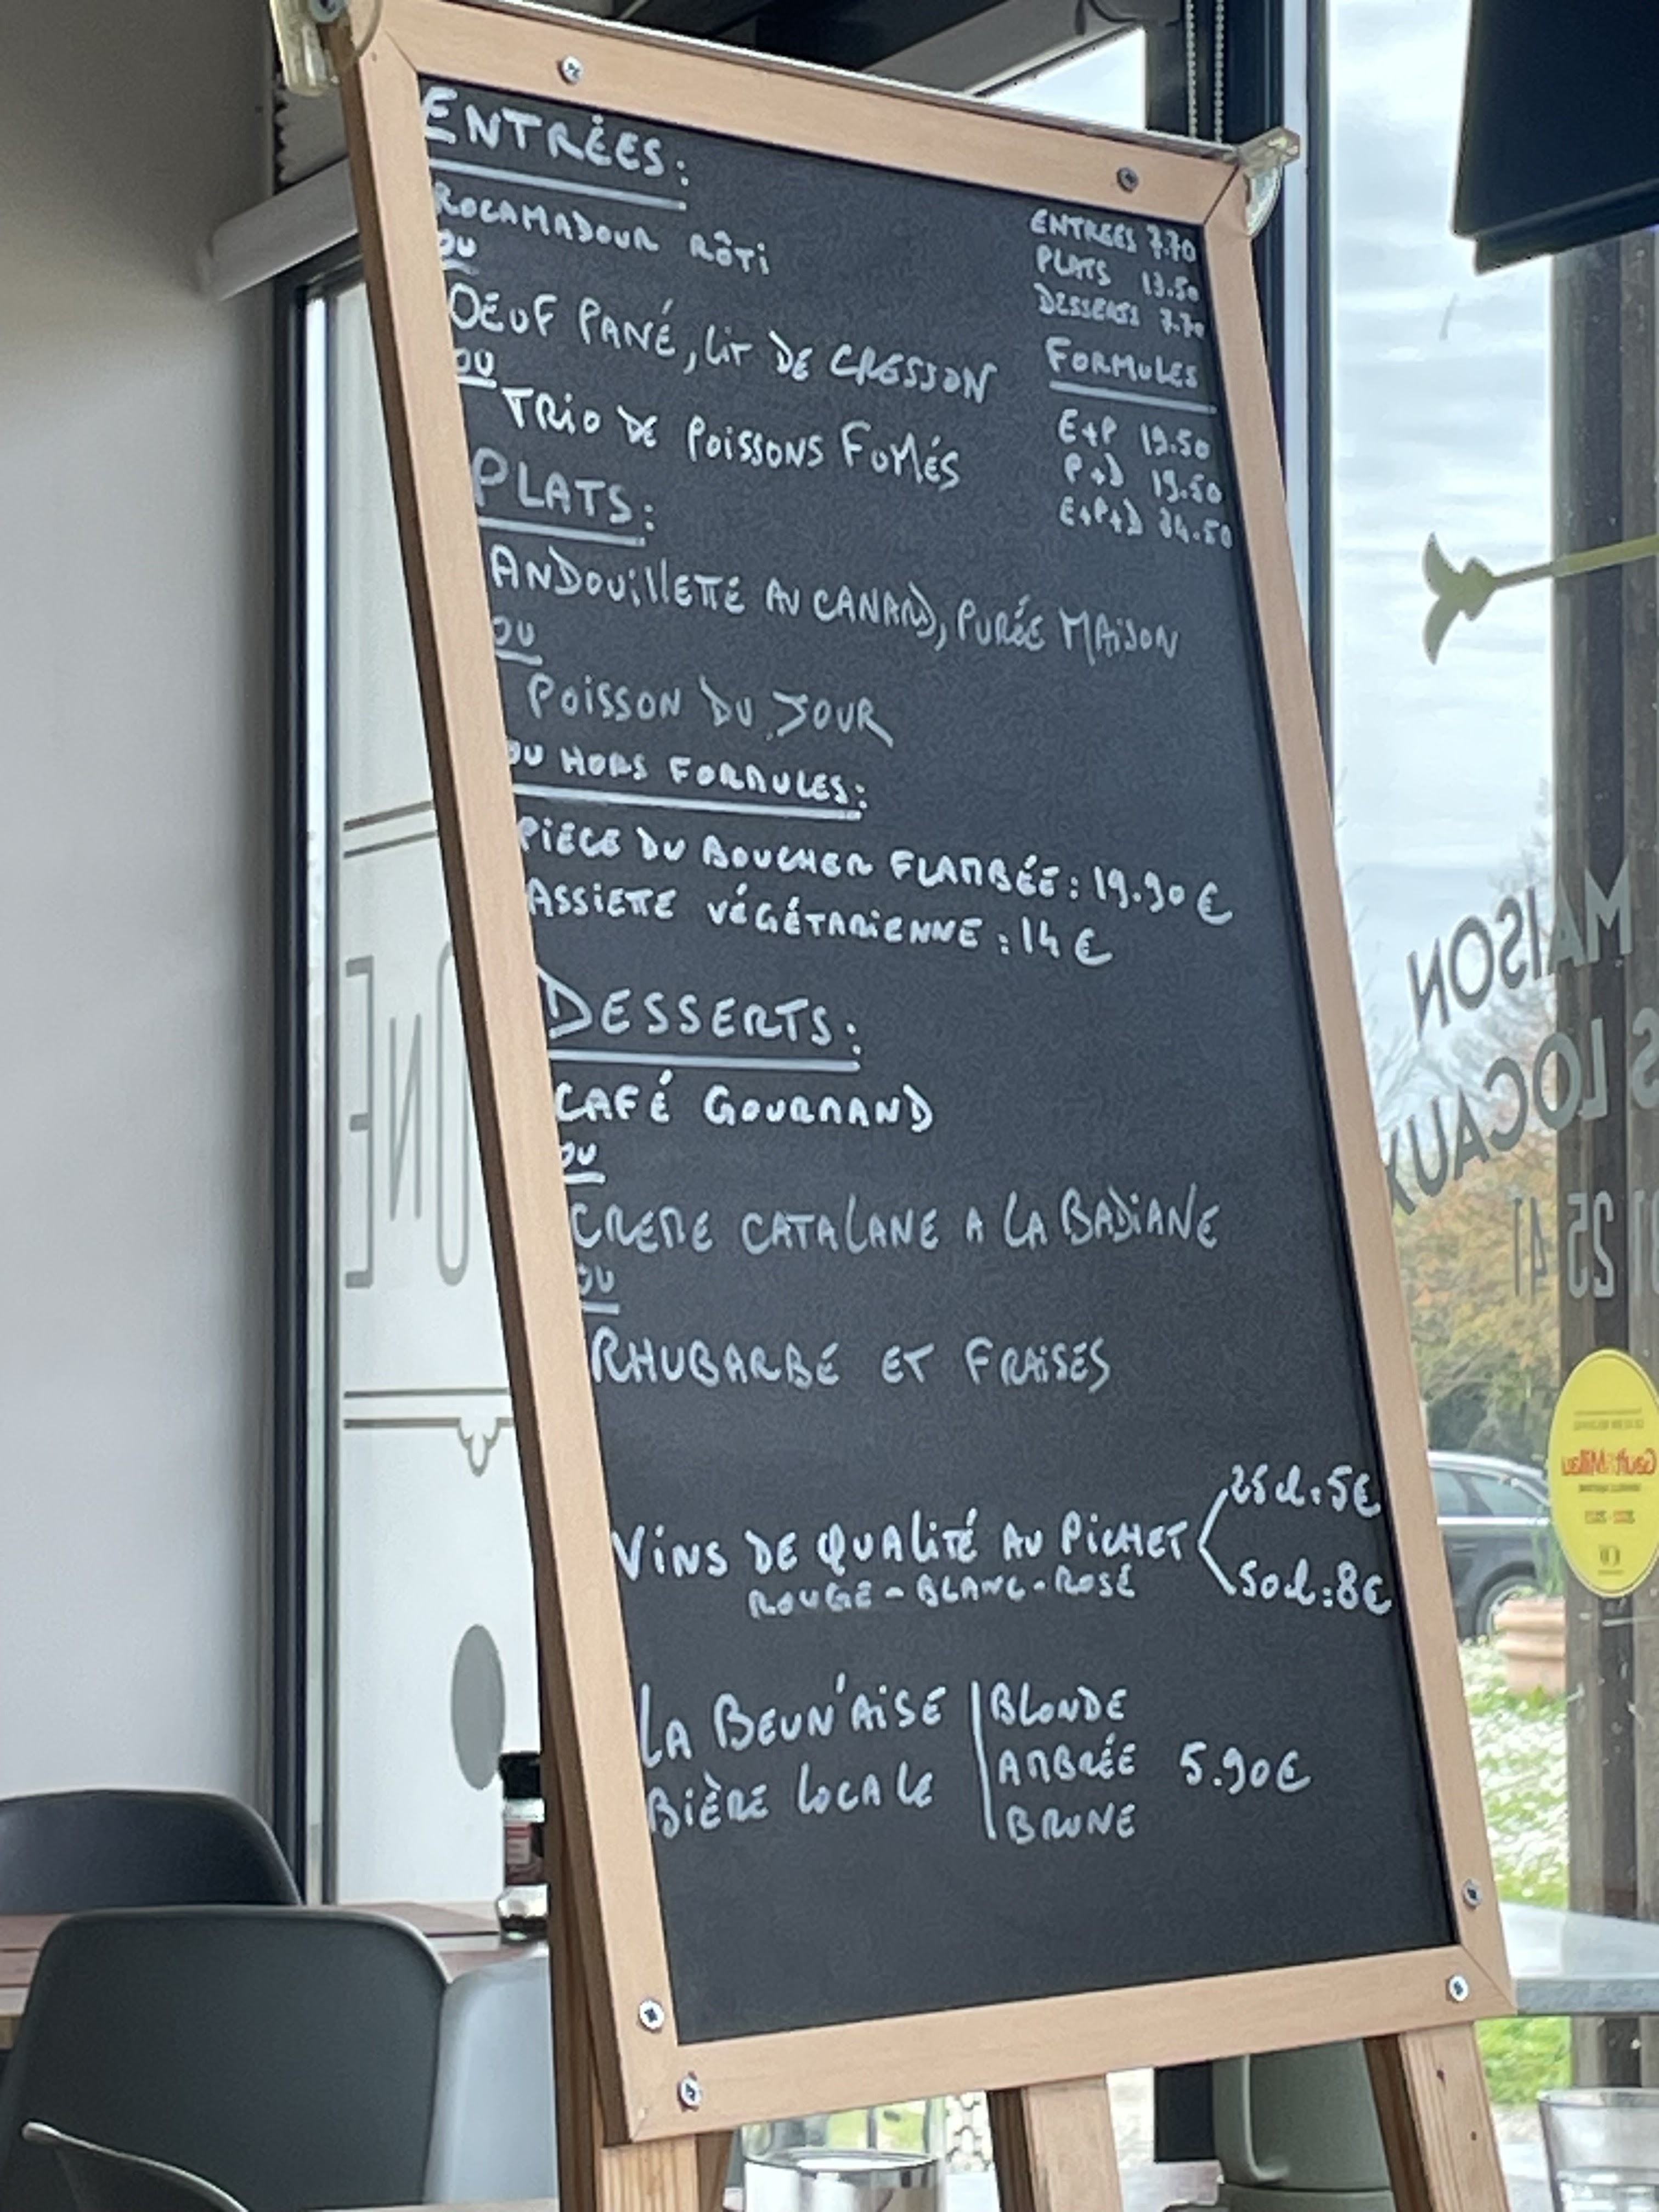 ENTRÉES:
ROCAMADOUR RÔTI
OU
OEUF PANÉ, LIT DE CRESSON
OU
TRIO DE POISSONS FUMÉS
ENTREES 7.70
PLATS 13.50
DESSERTS 7.70
FORMULES
E+P 19.50
P+D 19.50
E+P+D 24.50
PLATS:
ANDOUILLETTE AU CANARD, PURÉE MAISON
OU
POISSON DU JOUR
OU HORS FORMULES:
PIECE DU BOUCHER FLAMBÉE: 19.90€
ASSIETTE VÉGÉTARIENNE: 14€
DESSERTS:
CAFÉ GOURMAND
OU
CREME CATALANE A LA BADIANE
OU
RHUBARBE ET FRAISES
VINS DE QUALITÉ AU PICHET
25cl: 5€
50cl: 8€
ROUGE - BLANC - ROSÉ
LA BEUN'AISE
BIÈRE LOCALE
BLONDE
AMBRÉE 5.90€
BRUNE
MAISON
S LOCAUX
25 41
ONE
Gault&Millau